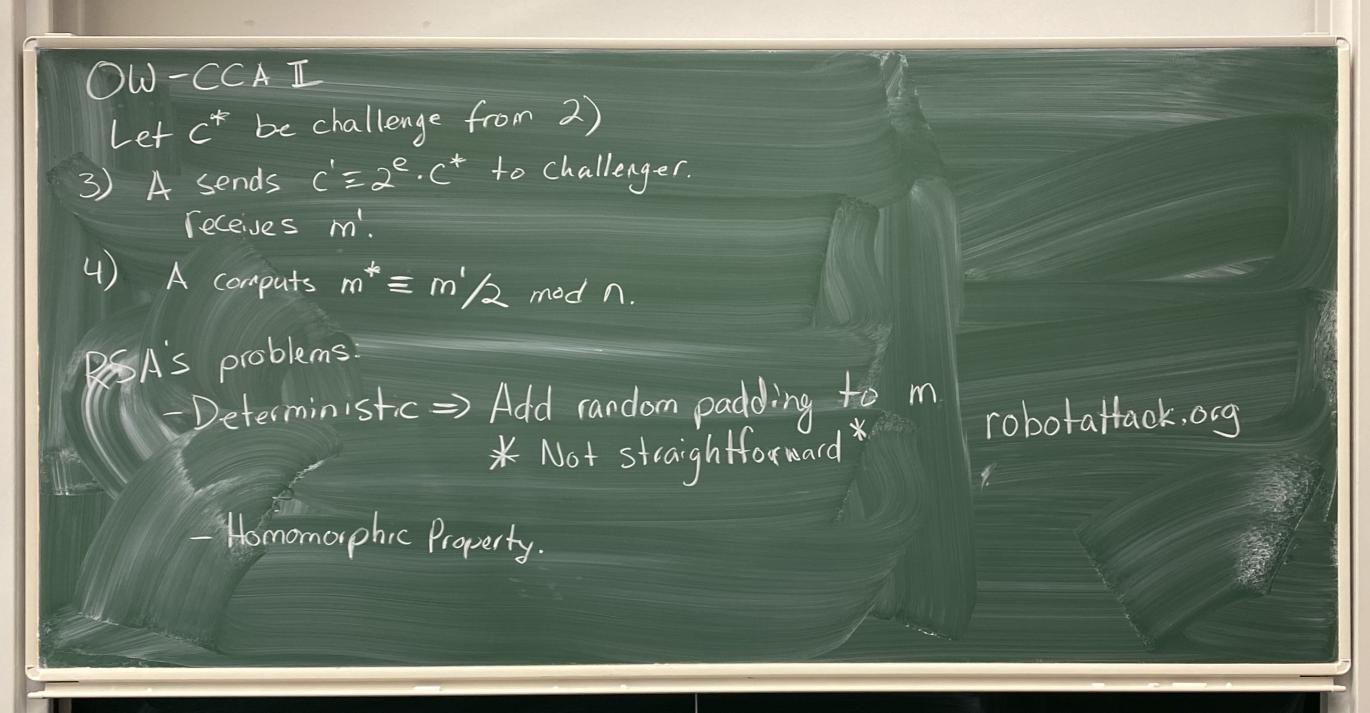 OW-CCA II
Let c* be challenge from 2)
3) A sends c' ≡ 2^e · c* to challenger.
receives m'.
4) A computs m* ≡ m'/2 mod n.
RSA's problems.
- Deterministic ⇒ Add random padding to m
* Not straightforward *
robotattack.org
- Homomorphic Property.